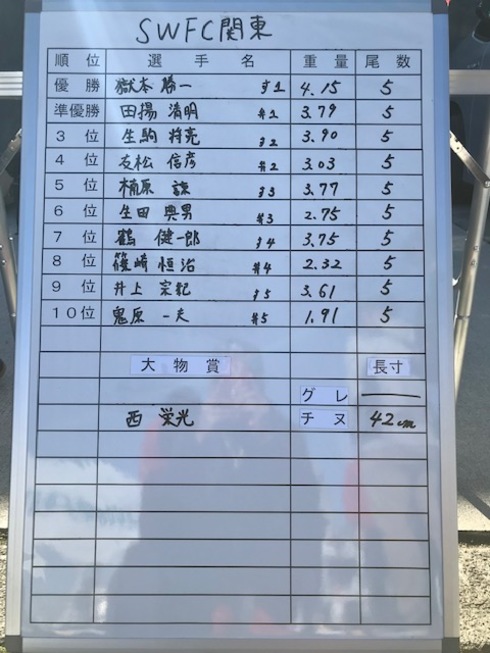 SWFC関東
順位 選手名 重量 尾数
優勝 嶽本 勝一 g1 4.15 5
準優勝 田揚 清明 #1 3.79 5
3位 生駒 将亮 g2 3.90 5
4位 友松 信彦 #2 3.03 5
5位 楠原 g3 3.77 5
6位 生田 興男 #3 2.75 5
7位 鶴 健一郎 g4 3.75 5
8位 篠崎 恒治 #4 2.32 5
9位 井上 宗紀 g5 3.61 5
10位 鬼原 一夫 #5 1.91 5
大物賞 長寸
グレ
西 栄光 チヌ 42cm